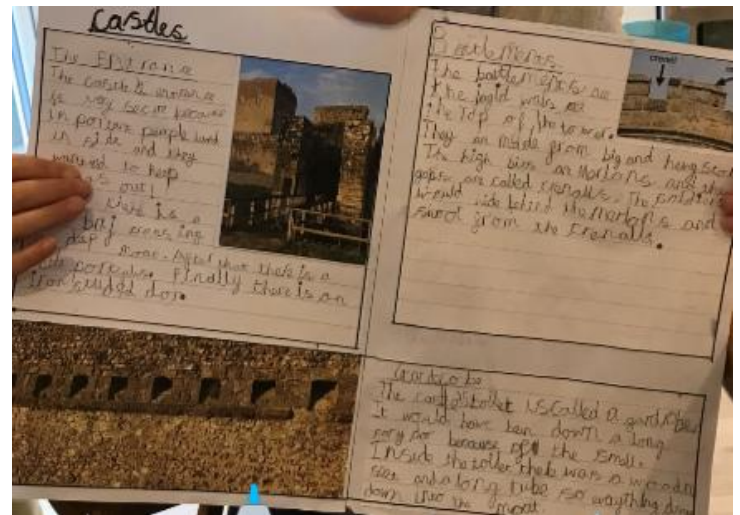 Castles
The Entrance
The castle's entrance
is very secure because
in portent people lived
in side and they
wanted to keep
out!
there is a
crossing
a deep moat. After that there is a
portculis. Finally there is an
iron studed dor.
Battlements
The battlements are
the jagid walls at
the top of the tower.
They are made from big and hevy ston
The high bits are Marlons and the
gapse are called crenalls. The soldiers
would hide behind the merlons and
shoot from the crenalls.
crenell
Gardrobe
The castle toilet is called a gardrobe
It would have ben down a long
cory dor because of the smell.
Inside the toilet there was a wooden
seat and a long tube so everything
down into the moat.